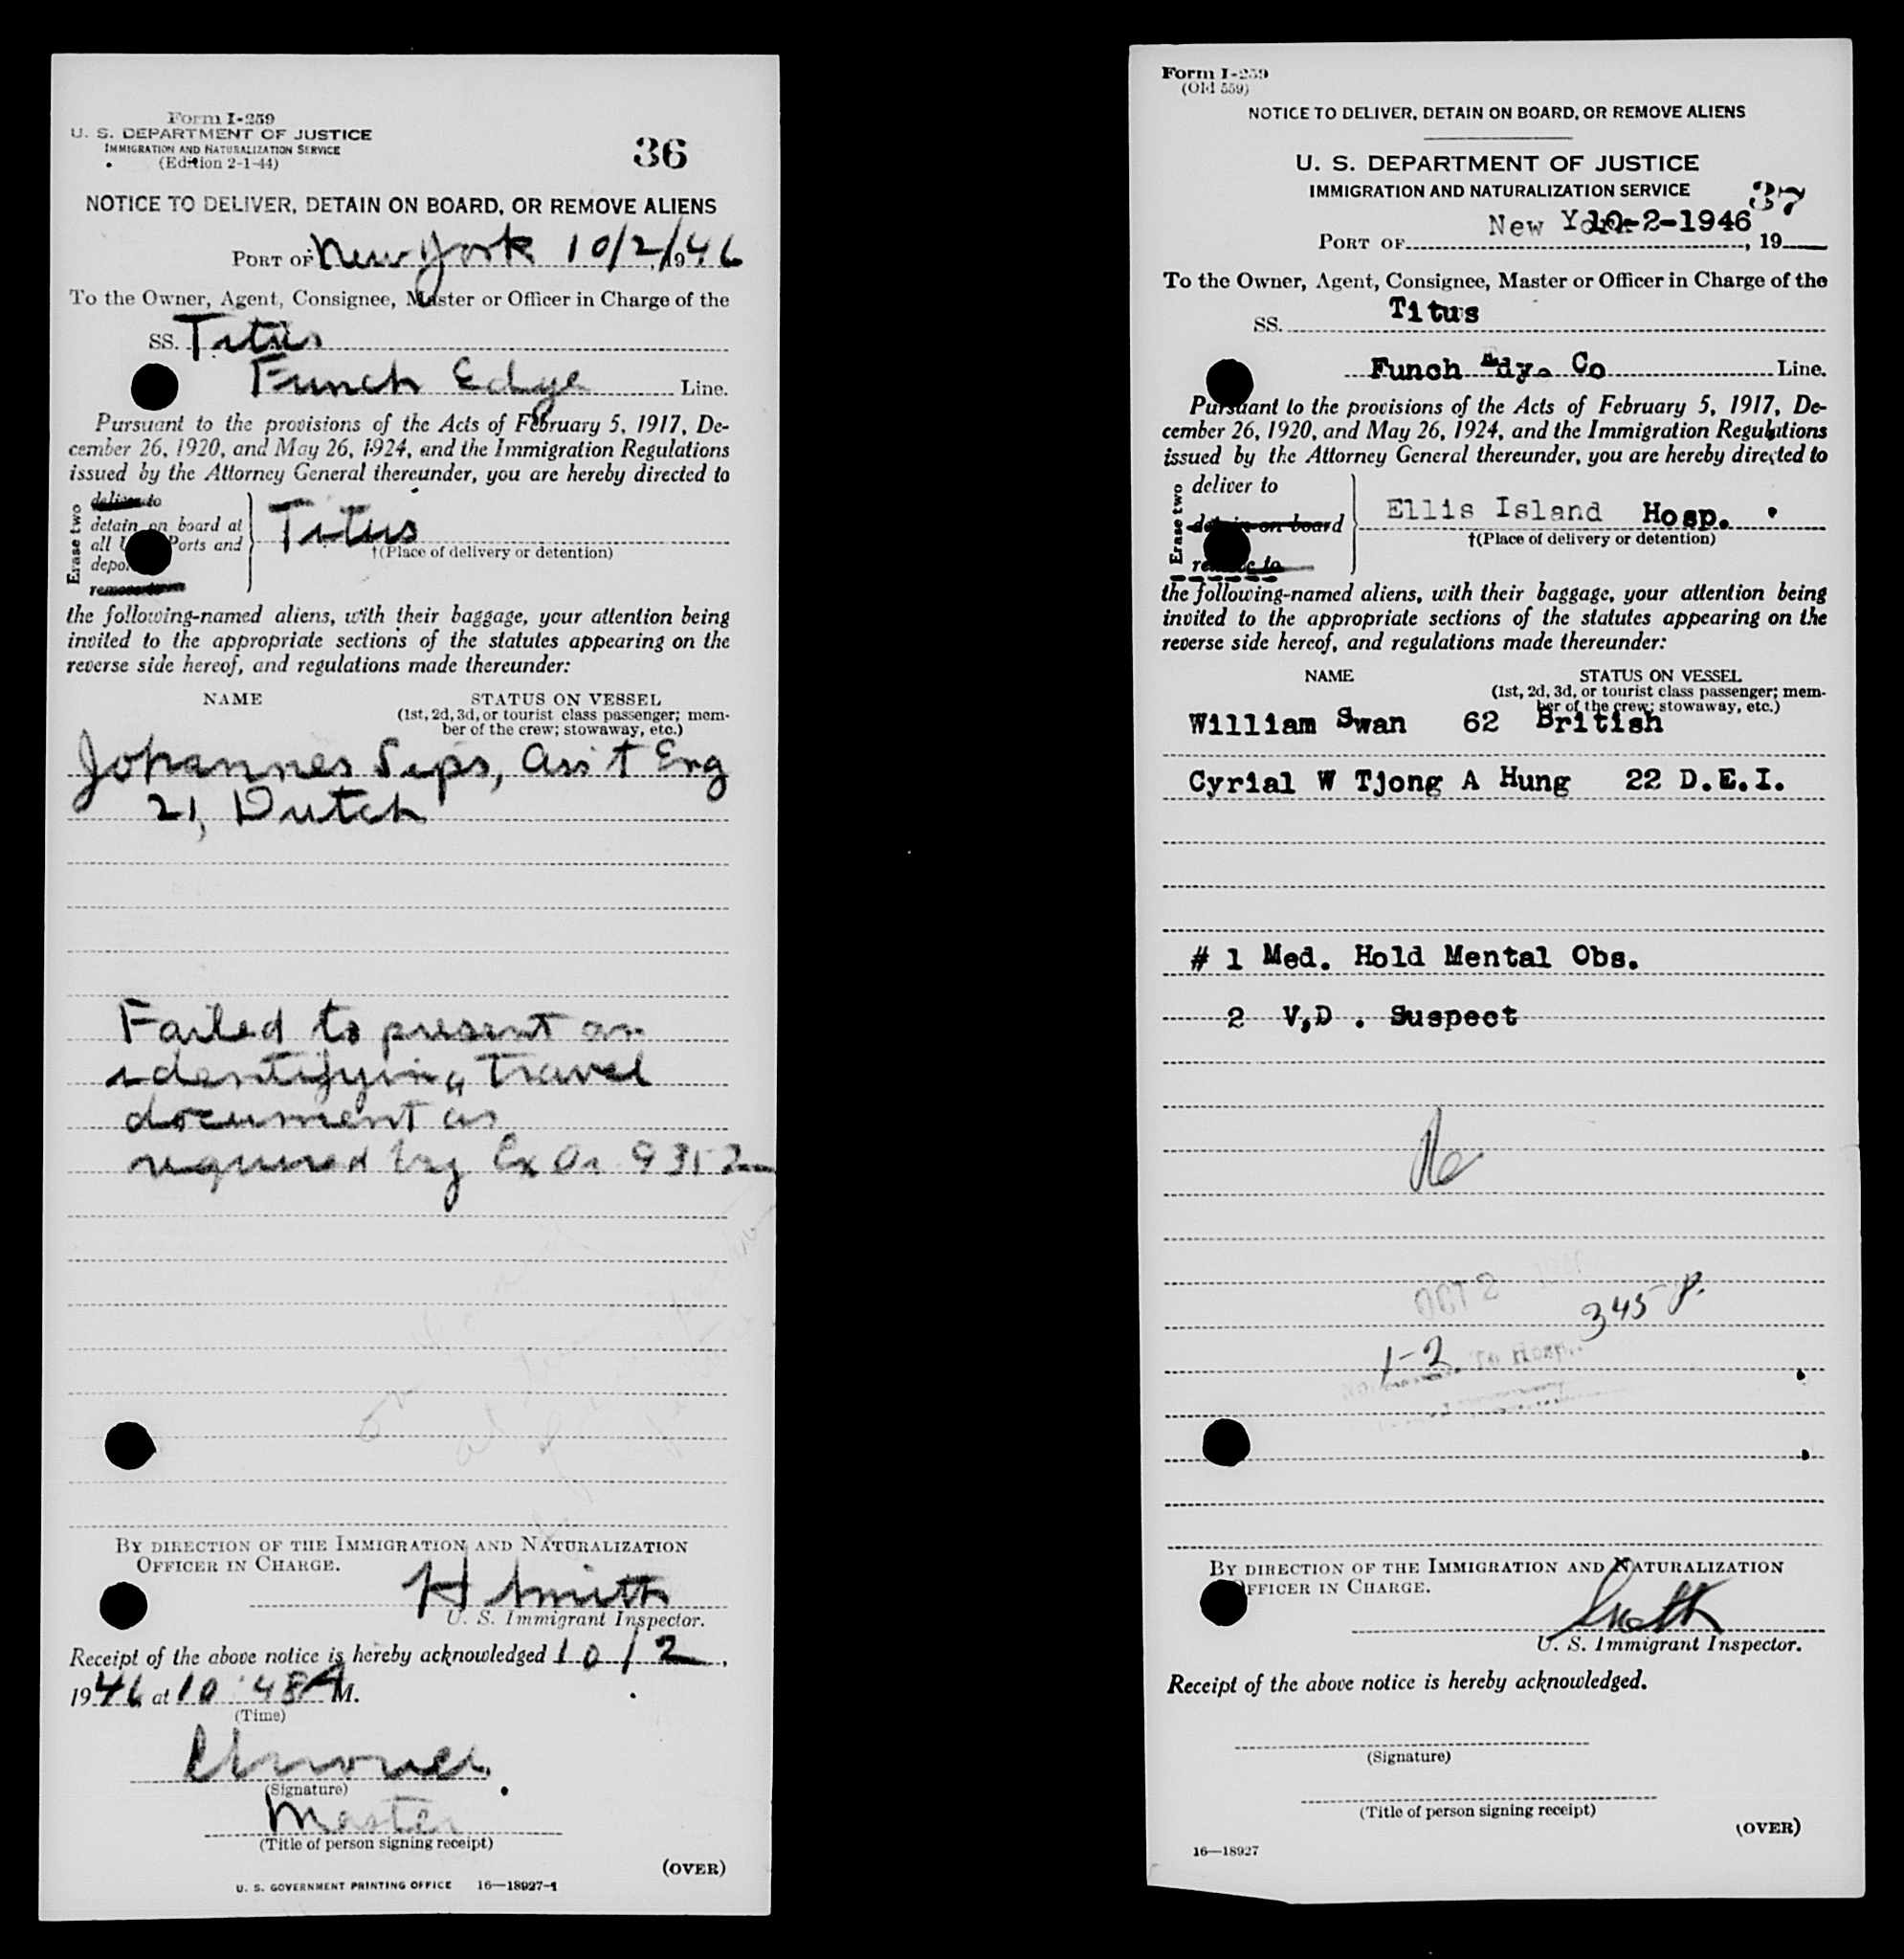 Form I-259
U. S. DEPARTMENT OF JUSTICE
IMMIGRATION AND NATURALIZATION SERVICE
(Edition 2-1-44)
36
NOTICE TO DELIVER, DETAIN ON BOARD, OR REMOVE ALIENS
PORT OF New York 10/2/1946
To the Owner, Agent, Consignee, Master or Officer in Charge of the
SS. Titus
Funch Edye Line.
Pursuant to the provisions of the Acts of February 5, 1917, De-
cember 26, 1920, and May 26, 1924, and the Immigration Regulations
issued by the Attorney General thereunder, you are hereby directed to
Erase two
deliver to
detain on board at
all U Ports and
depo
remove to
Titus
†(Place of delivery or detention)
the following-named aliens, with their baggage, your attention being
invited to the appropriate sections of the statutes appearing on the
reverse side hereof, and regulations made thereunder:
NAME STATUS ON VESSEL
(1st, 2d, 3d, or tourist class passenger; mem-
ber of the crew; stowaway, etc.)
Johannes Sips, Ass't Eng
21, Dutch
Failed to present an
identifying travel
document as
required by Ex Or 9352
BY DIRECTION OF THE IMMIGRATION AND NATURALIZATION
OFFICER IN CHARGE.
H Smith
U. S. Immigrant Inspector.
Receipt of the above notice is hereby acknowledged 10/2,
1946 at 10:48 A M.
(Time)
(Signature)
Master
(Title of person signing receipt)
(OVER)
U. S. GOVERNMENT PRINTING OFFICE 16—18927-1
Form I-259
(Old 559)
NOTICE TO DELIVER, DETAIN ON BOARD, OR REMOVE ALIENS
U. S. DEPARTMENT OF JUSTICE
IMMIGRATION AND NATURALIZATION SERVICE
37
PORT OF New York 10-2-1946, 19
To the Owner, Agent, Consignee, Master or Officer in Charge of the
SS. Titus
Funch Edye Co Line.
Pursuant to the provisions of the Acts of February 5, 1917, De-
cember 26, 1920, and May 26, 1924, and the Immigration Regulations
issued by the Attorney General thereunder, you are hereby directed to
Erase two
deliver to
detain on board
remove to
Ellis Island Hosp.
†(Place of delivery or detention)
the following-named aliens, with their baggage, your attention being
invited to the appropriate sections of the statutes appearing on the
reverse side hereof, and regulations made thereunder:
NAME STATUS ON VESSEL
(1st, 2d, 3d, or tourist class passenger; mem-
ber of the crew; stowaway, etc.)
William Swan 62 British
Cyrial W Tjong A Hung 22 D.E.I.
# 1 Med. Hold Mental Obs.
2 V,D . Suspect
OCT 2 1946
345 P.
No. 1-2 To Hosp.
BY DIRECTION OF THE IMMIGRATION AND NATURALIZATION
OFFICER IN CHARGE.
Smith
U. S. Immigrant Inspector.
Receipt of the above notice is hereby acknowledged.
(Signature)
(Title of person signing receipt)
(OVER)
16—18927